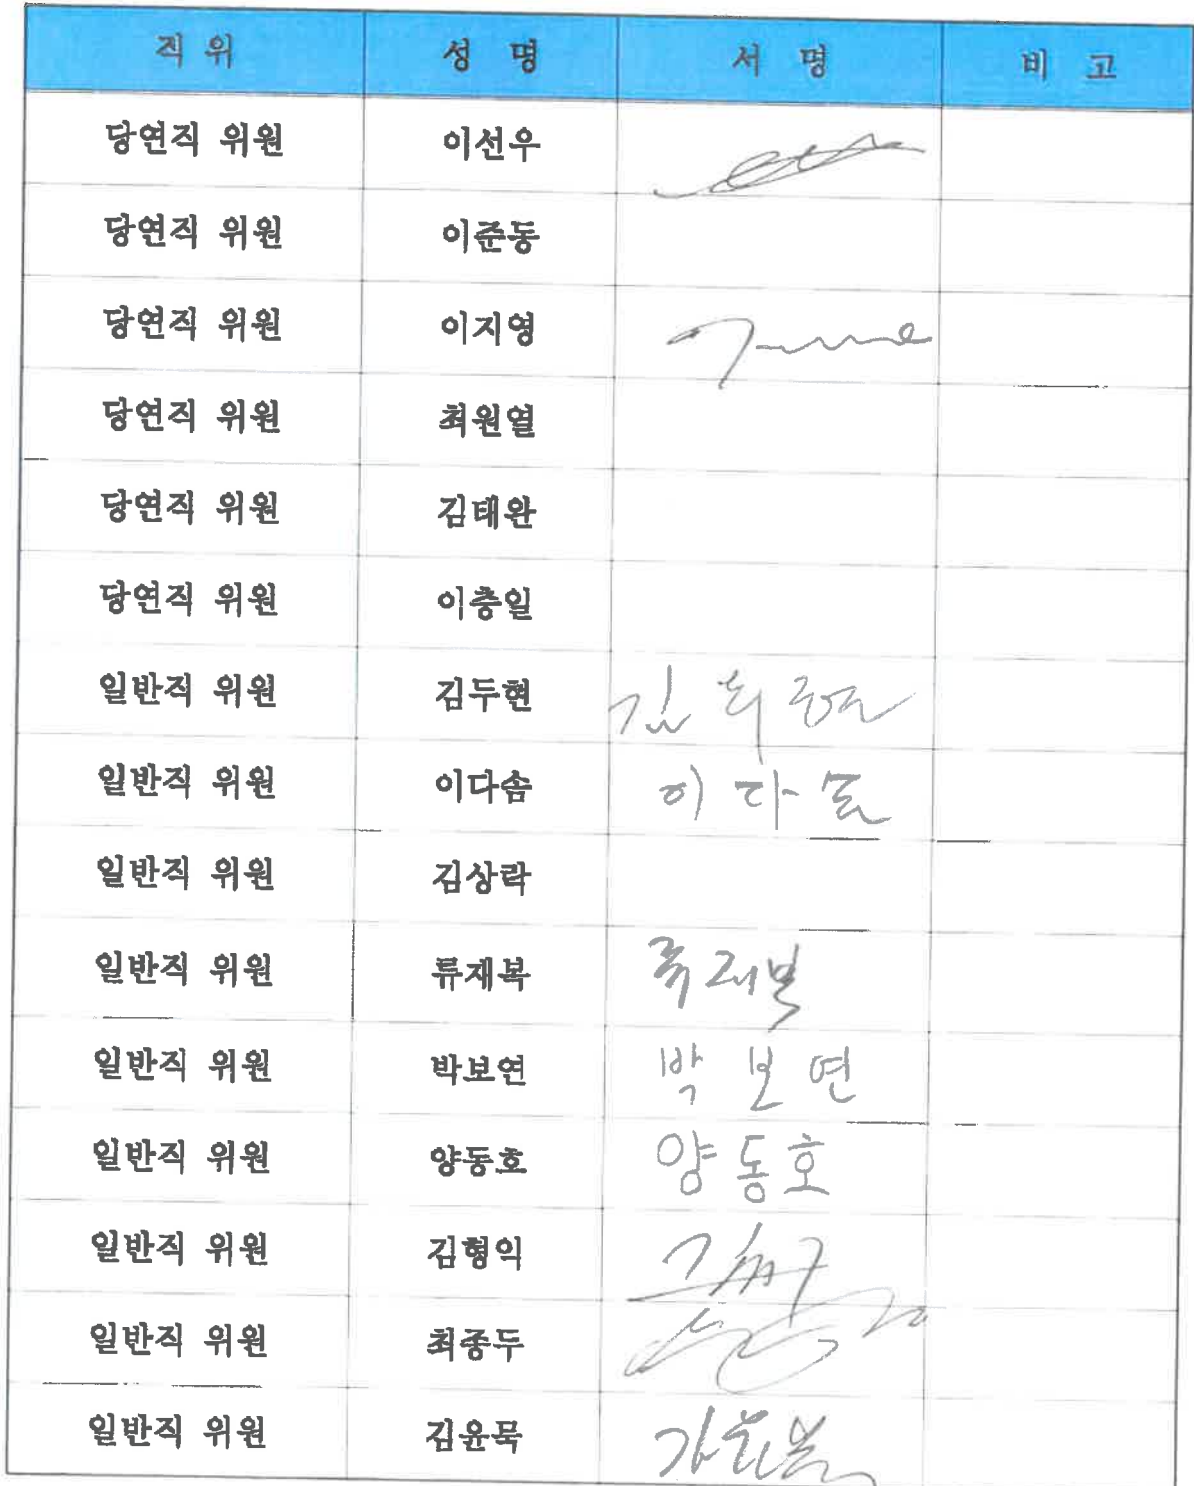 직 위 성 명 서 명 비 고
당연직 위원 이선우
당연직 위원 이준동
당연직 위원 이지영
당연직 위원 최원열
당연직 위원 김태완
당연직 위원 이충일
일반직 위원 김두현 김
일반직 위원 이다솜 이다솜
일반직 위원 김상락
일반직 위원 류재복 류재복
일반직 위원 박보연 박보연
일반직 위원 양동호 양동호
일반직 위원 김형익
일반직 위원 최종두
일반직 위원 김윤묵